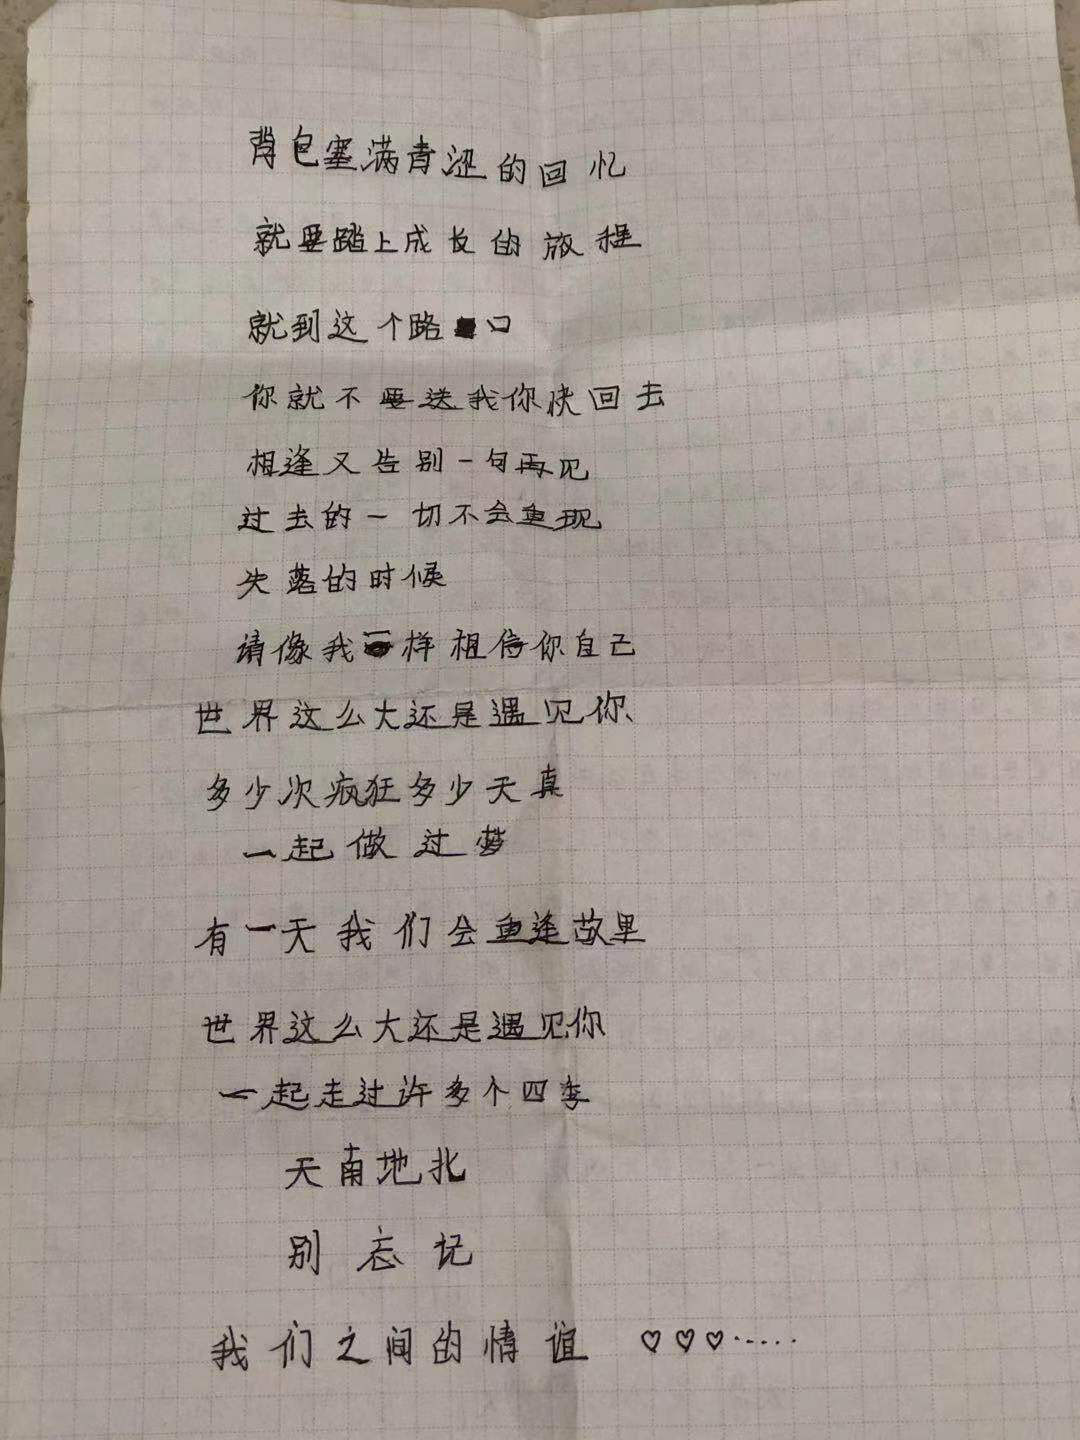 背包塞满青涩的回忆
就要踏上成长的旅程
就到这个路口
你就不要送我你快回去
相逢又告别一句再见
过去的一切不会重现
失落的时候
请像我一样相信你自己
世界这么大还是遇见你
多少次疯狂多少天真
一起做过梦
有一天我们会重逢故里
世界这么大还是遇见你
一起走过许多个四季
天南地北
别忘记
我们之间的情谊 ♡♡♡······